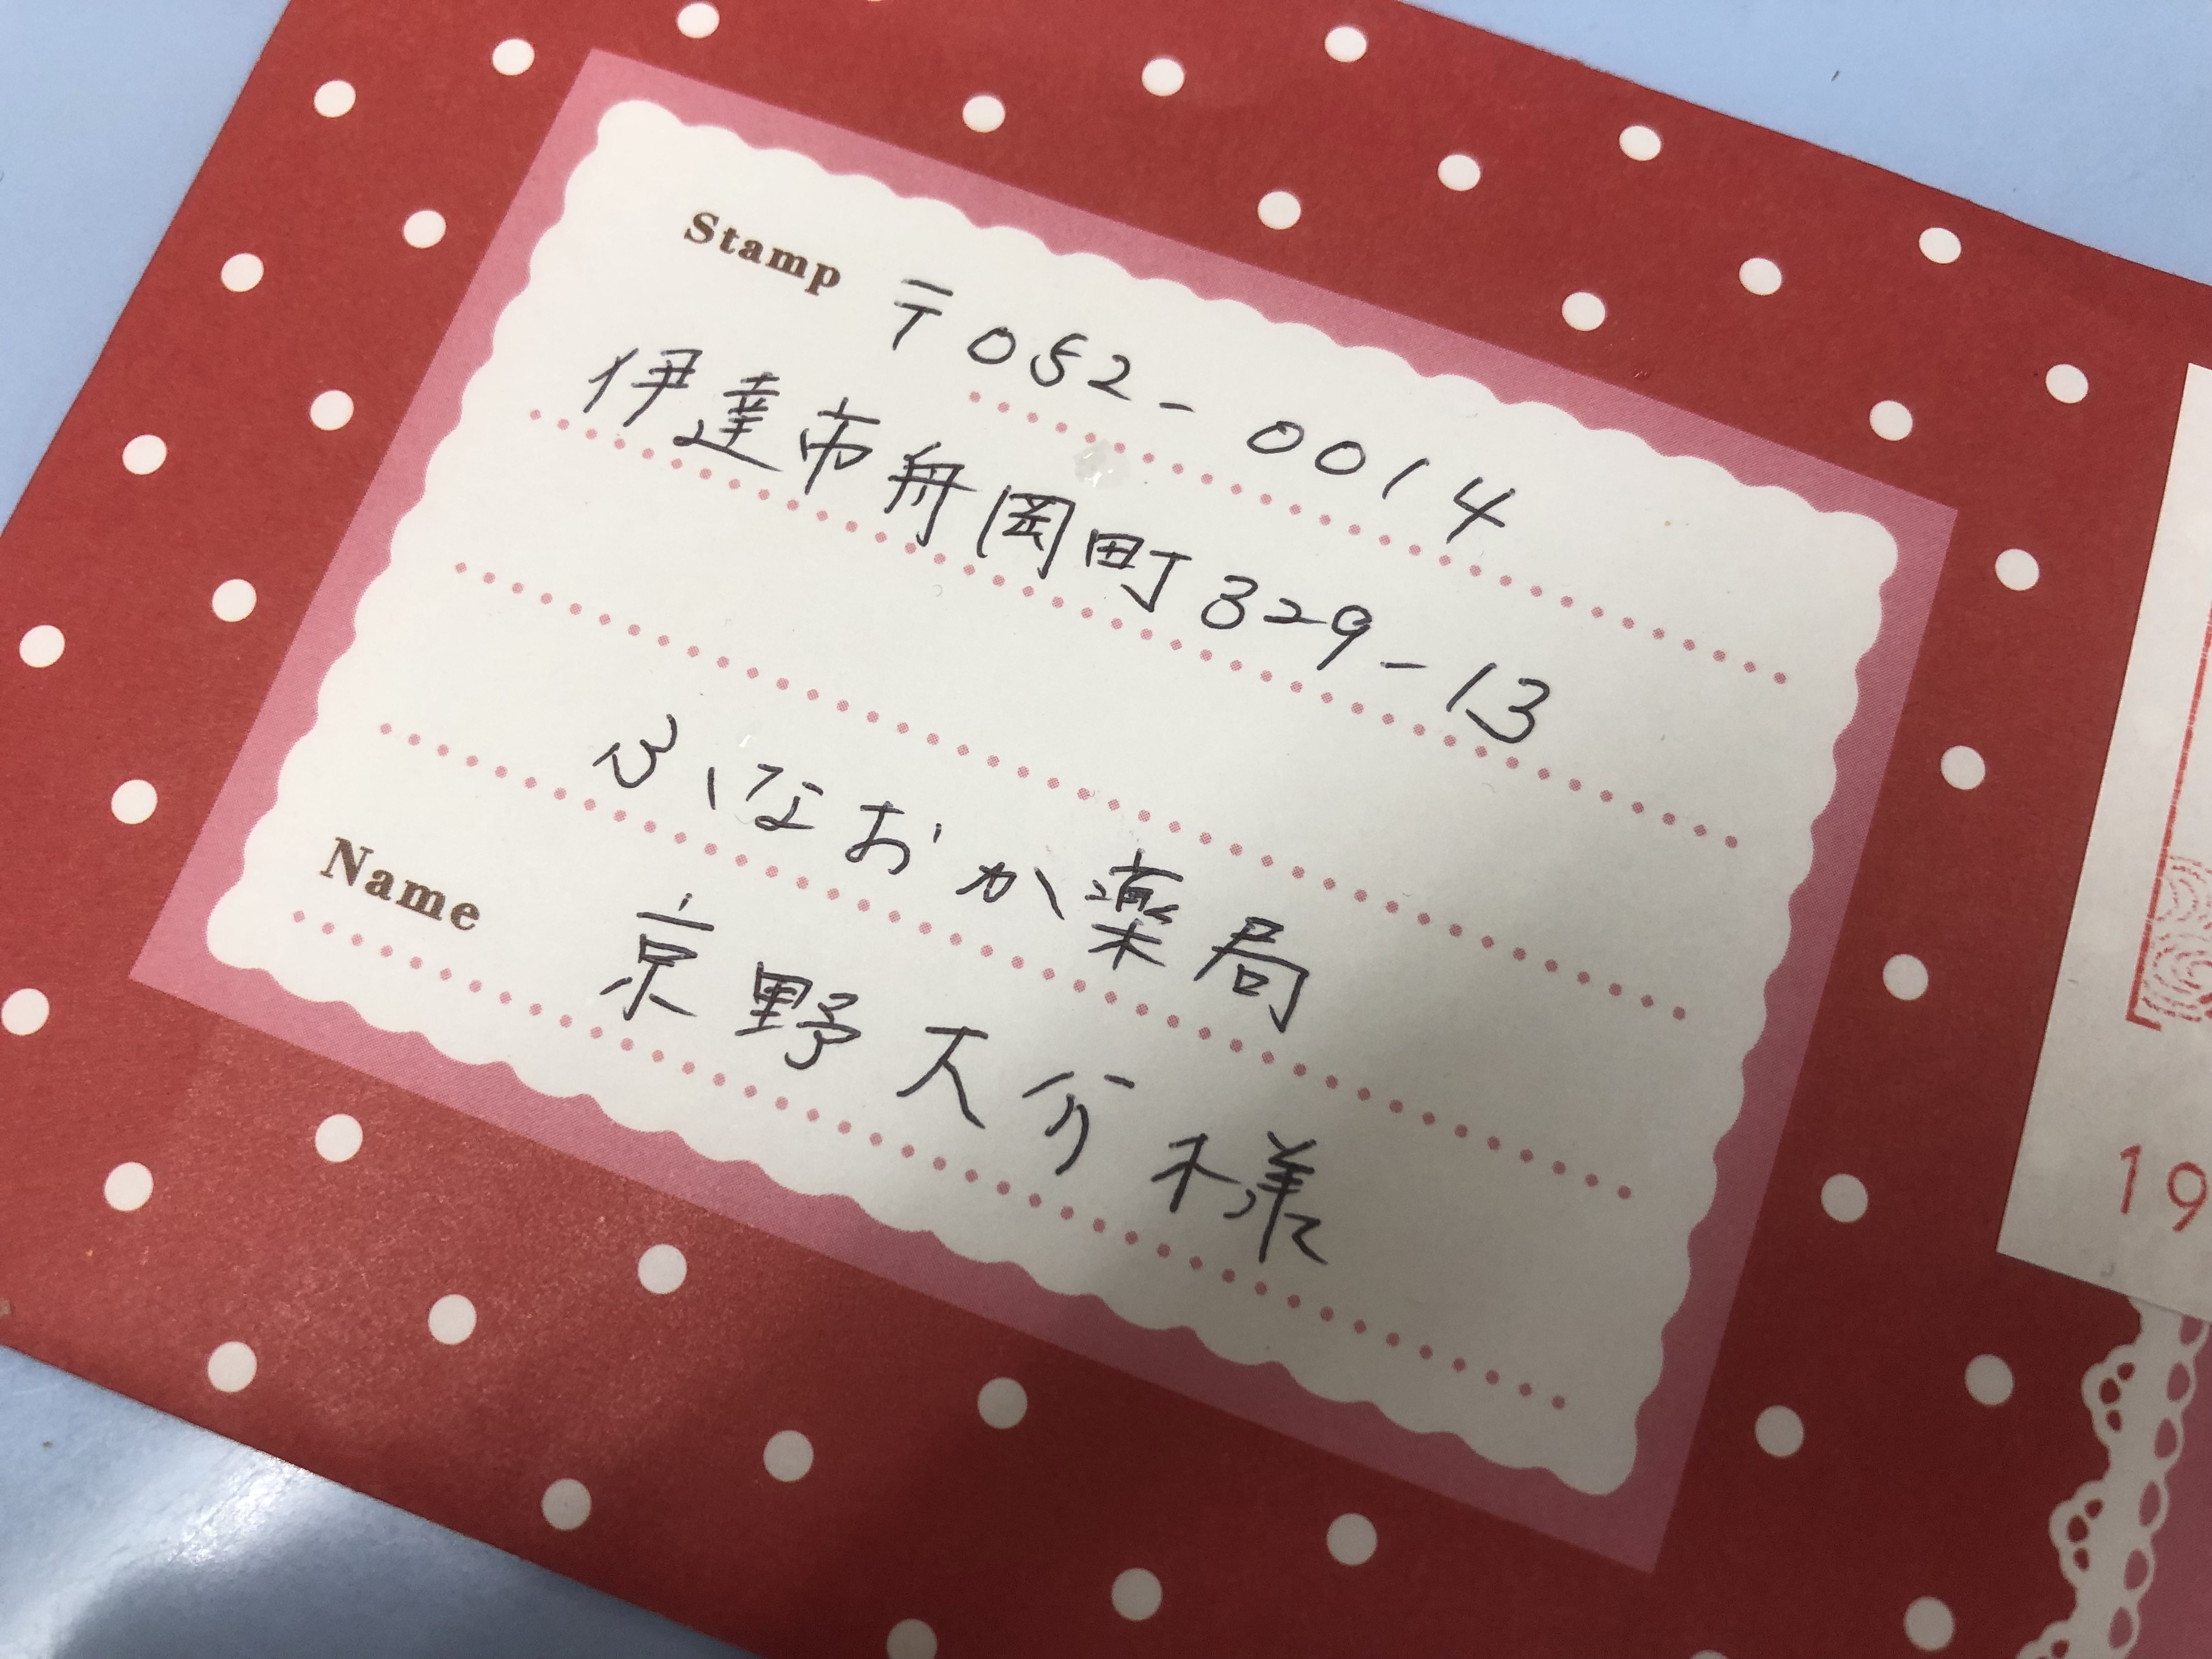 Stamp 〒052-0014
伊達市舟岡町329-13
ふなおか薬局
Name 京野大介様
19